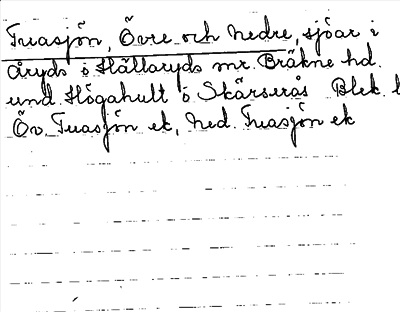 Tuasjön, Övre och Nedre, sjöar i
Åryds o Hällaryds snr. Bräkne hd.
und. Högahult o Skärserås Blek. l
Öv. Tuasjön ek, Ned. Tuasjön ek